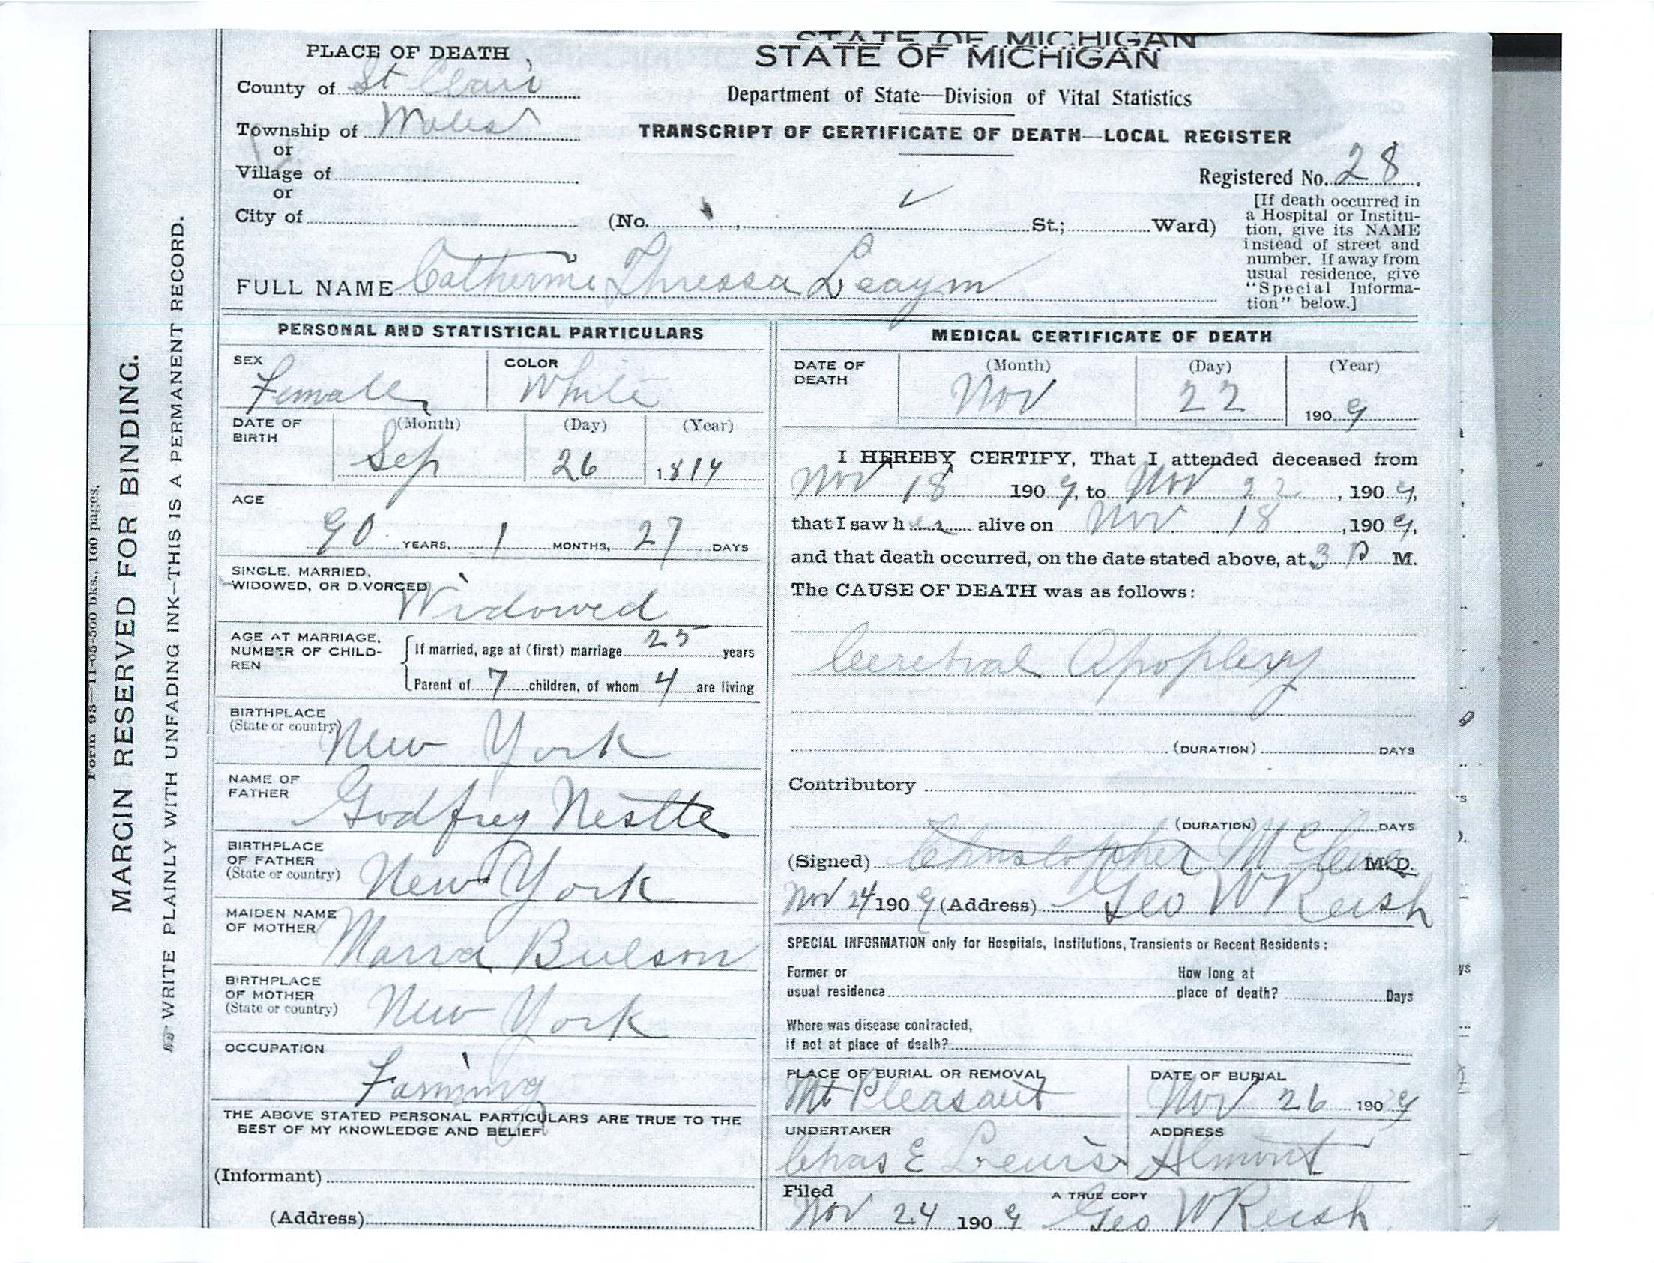 STATE OF MICHIGAN
PLACE OF DEATH
STATE OF MICHIGAN
County of St Clair
Department of State—Division of Vital Statistics
Township of
TRANSCRIPT OF CERTIFICATE OF DEATH—LOCAL REGISTER
or
Village of
Registered No. 28
or
City of (No. St.; Ward)
[If death occurred in
a Hospital or Institu-
tion, give its NAME
instead of street and
number. If away from
usual residence, give
"Special Informa-
tion" below.]
FULL NAME Catherine Thressa
PERSONAL AND STATISTICAL PARTICULARS
SEX
Female
COLOR
White
DATE OF
BIRTH
(Month) (Day) (Year)
Sep 26 1819
AGE
90 YEARS, 1 MONTHS, 27 DAYS
SINGLE, MARRIED,
WIDOWED, OR DIVORCED
Widowed
AGE AT MARRIAGE,
NUMBER OF CHILD-
REN
If married, age at (first) marriage 25 years
Parent of 7 children, of whom 4 are living
BIRTHPLACE
(State or country)
New York
NAME OF
FATHER
Godfrey Nestte
BIRTHPLACE
OF FATHER
(State or country)
New York
MAIDEN NAME
OF MOTHER
Bulson
BIRTHPLACE
OF MOTHER
(State or country)
New York
OCCUPATION
Farming
THE ABOVE STATED PERSONAL PARTICULARS ARE TRUE TO THE
BEST OF MY KNOWLEDGE AND BELIEF
(Informant)
(Address)
MEDICAL CERTIFICATE OF DEATH
DATE OF
DEATH
(Month) (Day) (Year)
Nov 22 1909
I HEREBY CERTIFY, That I attended deceased from
Nov 18 1909, to Nov 22, 1909,
that I saw her alive on Nov 18, 1909,
and that death occurred, on the date stated above, at 3 P M.
The CAUSE OF DEATH was as follows:
Cerebral Apoplexy
(DURATION) DAYS
Contributory
(DURATION) DAYS
(Signed) Christopher M.D.
Nov 24 1909 (Address) Geo W Reish
SPECIAL INFORMATION only for Hospitals, Institutions, Transients or Recent Residents:
Former or
usual residence
How long at
place of death? Days
Where was disease contracted,
if not at place of death?
PLACE OF BURIAL OR REMOVAL
Mt Pleasant
DATE OF BURIAL
Nov 26 1909
UNDERTAKER
Chas E Lewis
ADDRESS
Almont
Filed
Nov 24 1909
A TRUE COPY
Geo W Reish
MARGIN RESERVED FOR BINDING.
WRITE PLAINLY WITH UNFADING INK—THIS IS A PERMANENT RECORD.